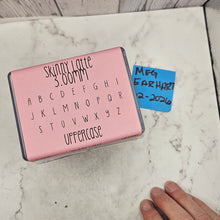 SKINNY LATTE
3.00MM
A B C D E F G H I
J K L M N O P Q R
S T U V W X Y Z
UPPERCASE
MEG
EARHART
12-2026